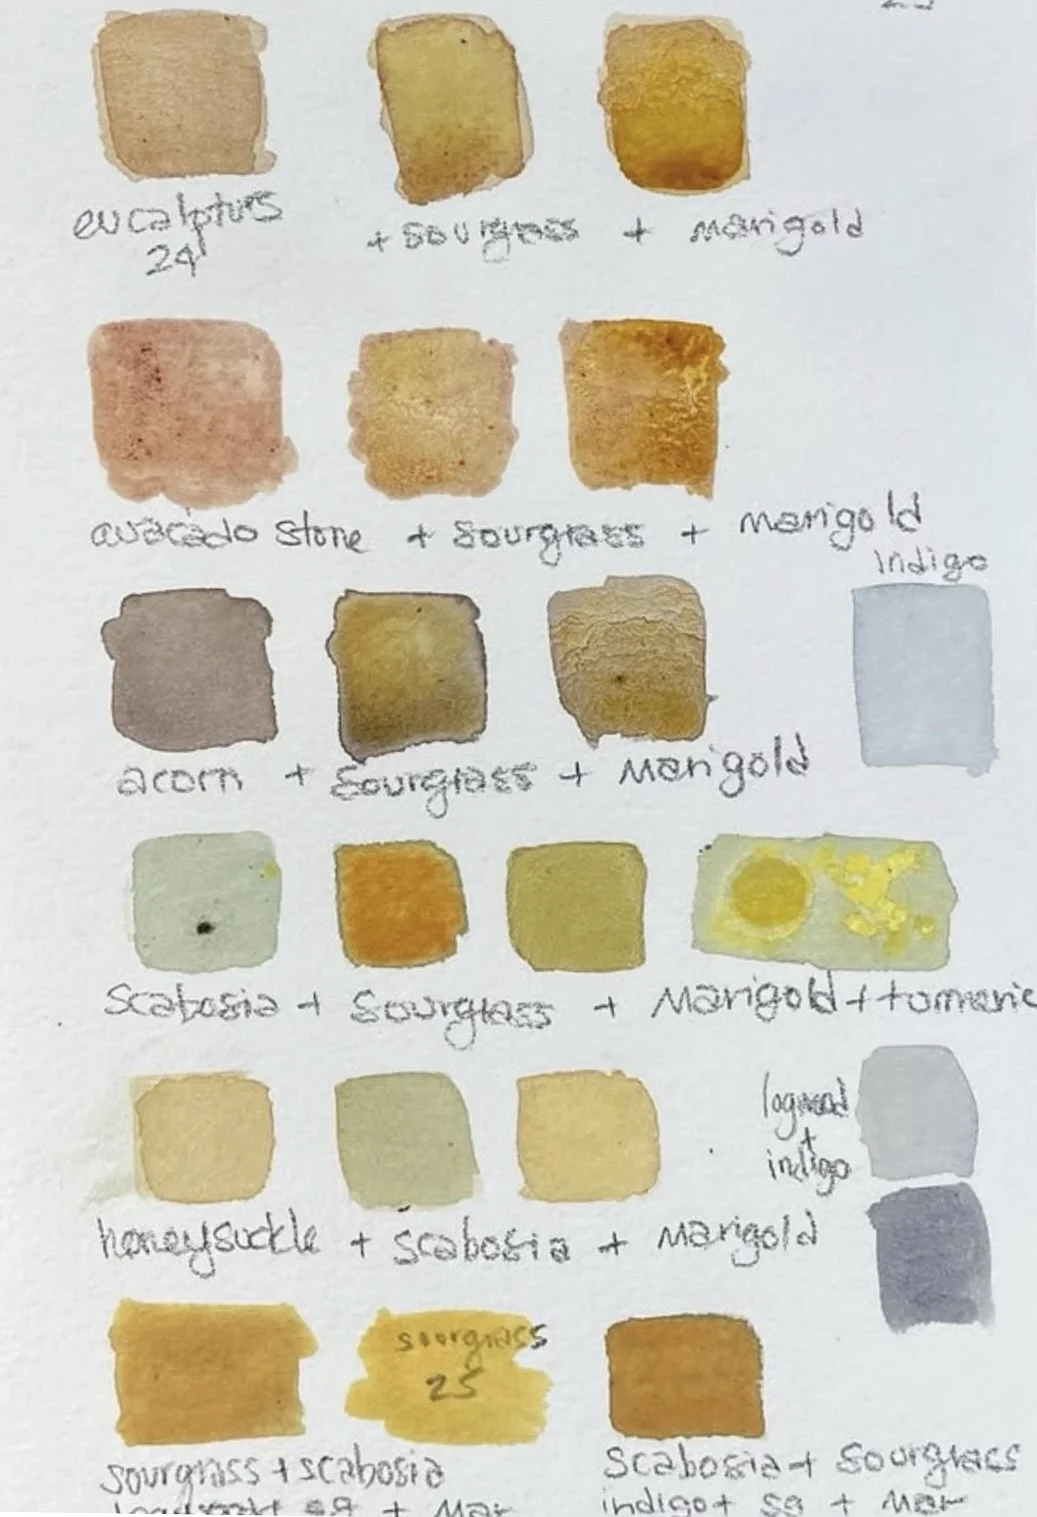 eucalptus + sourgrass + marigold
24
avacado stone + sourgrass + marigold
Indigo
acorn + sourgrass + Marigold
Scabosia + Sourgrass + Marigold + turmeric
logwood
+
indigo
honeysuckle + scabosia + Marigold
sourgrass
25
sourgrass + scabosia
Scabosia + Sourgrass
indigo + sg + Mar